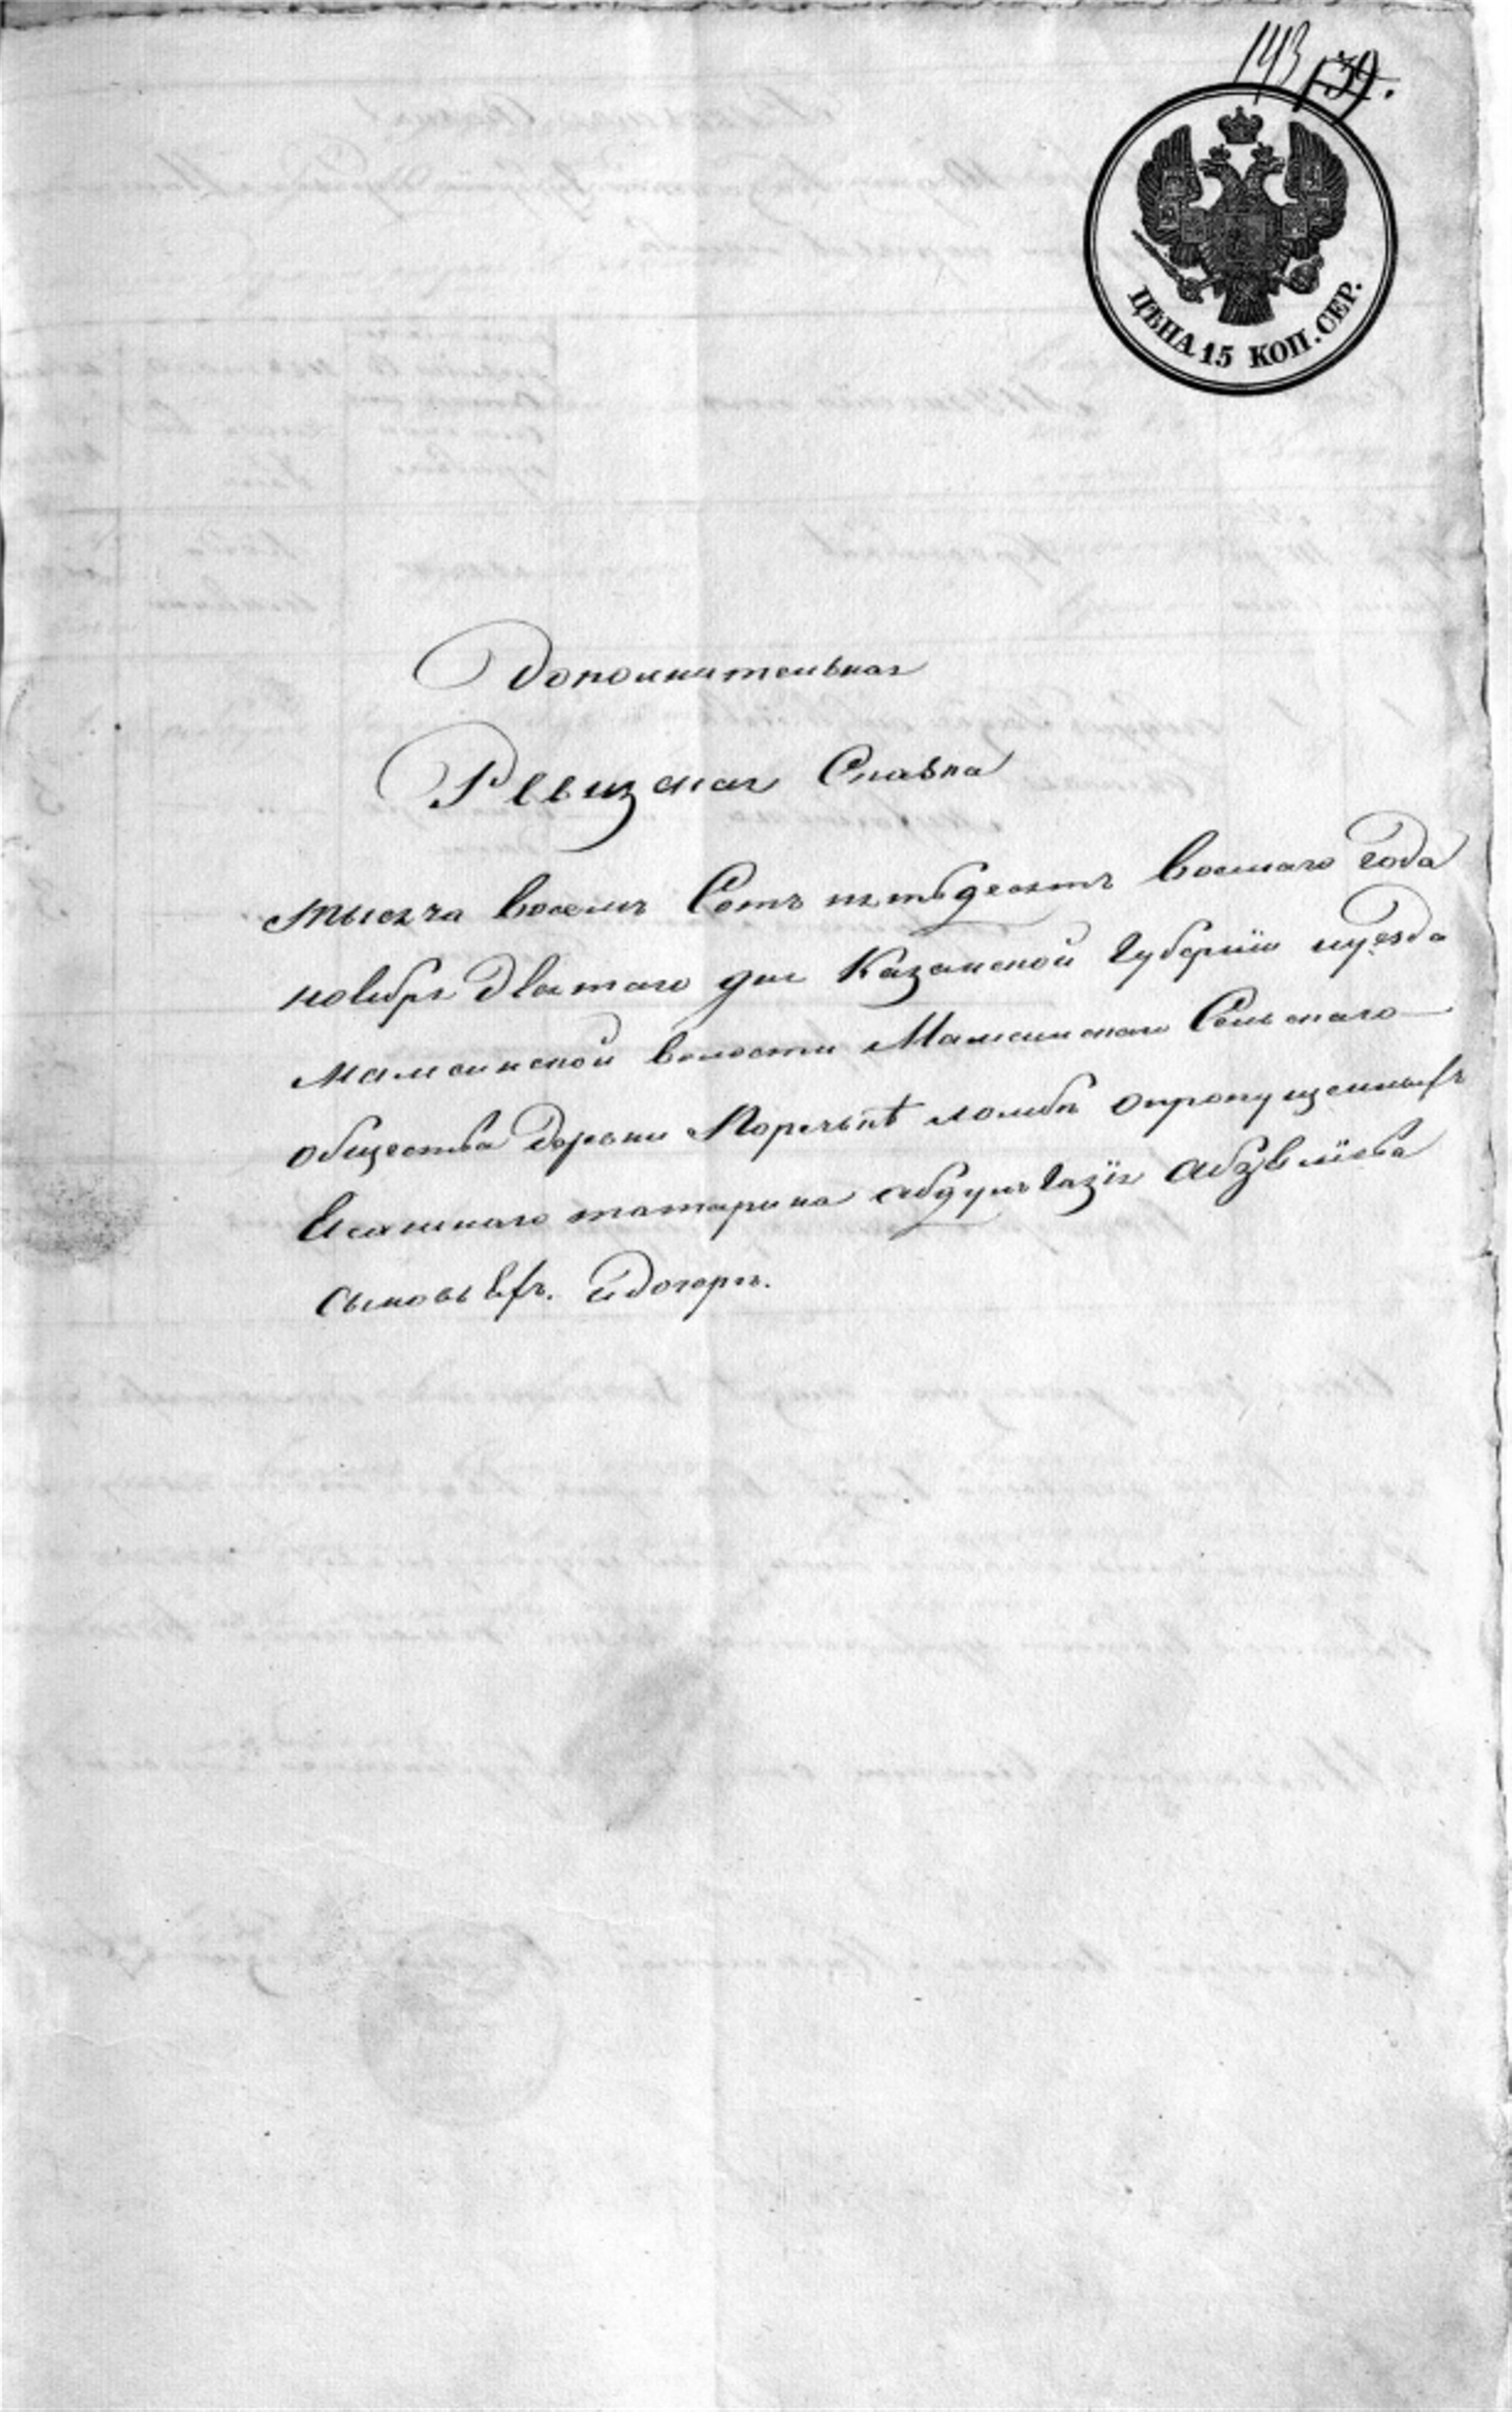 143 139.
ЦѢНА 15 КОП. СЕР.
Дополнительная
Ревизская Скаска
тысяча восемь Сотъ пятьдесятъ восьмаго года
ноября дватаго дня Казанской Губерніи и уезда
Мамсинской волости Мамсинскаго Сельскаго
общества Деревни опропущенныхъ
Ясашнаго татарина абдулвазія
сыновьяхъ. и дочери.